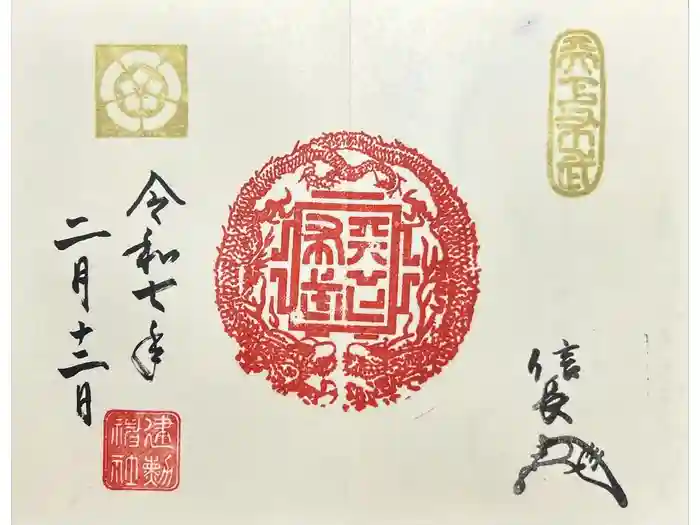 天下布武
信長
天下布武
令和七年
二月十二日
建勲神社